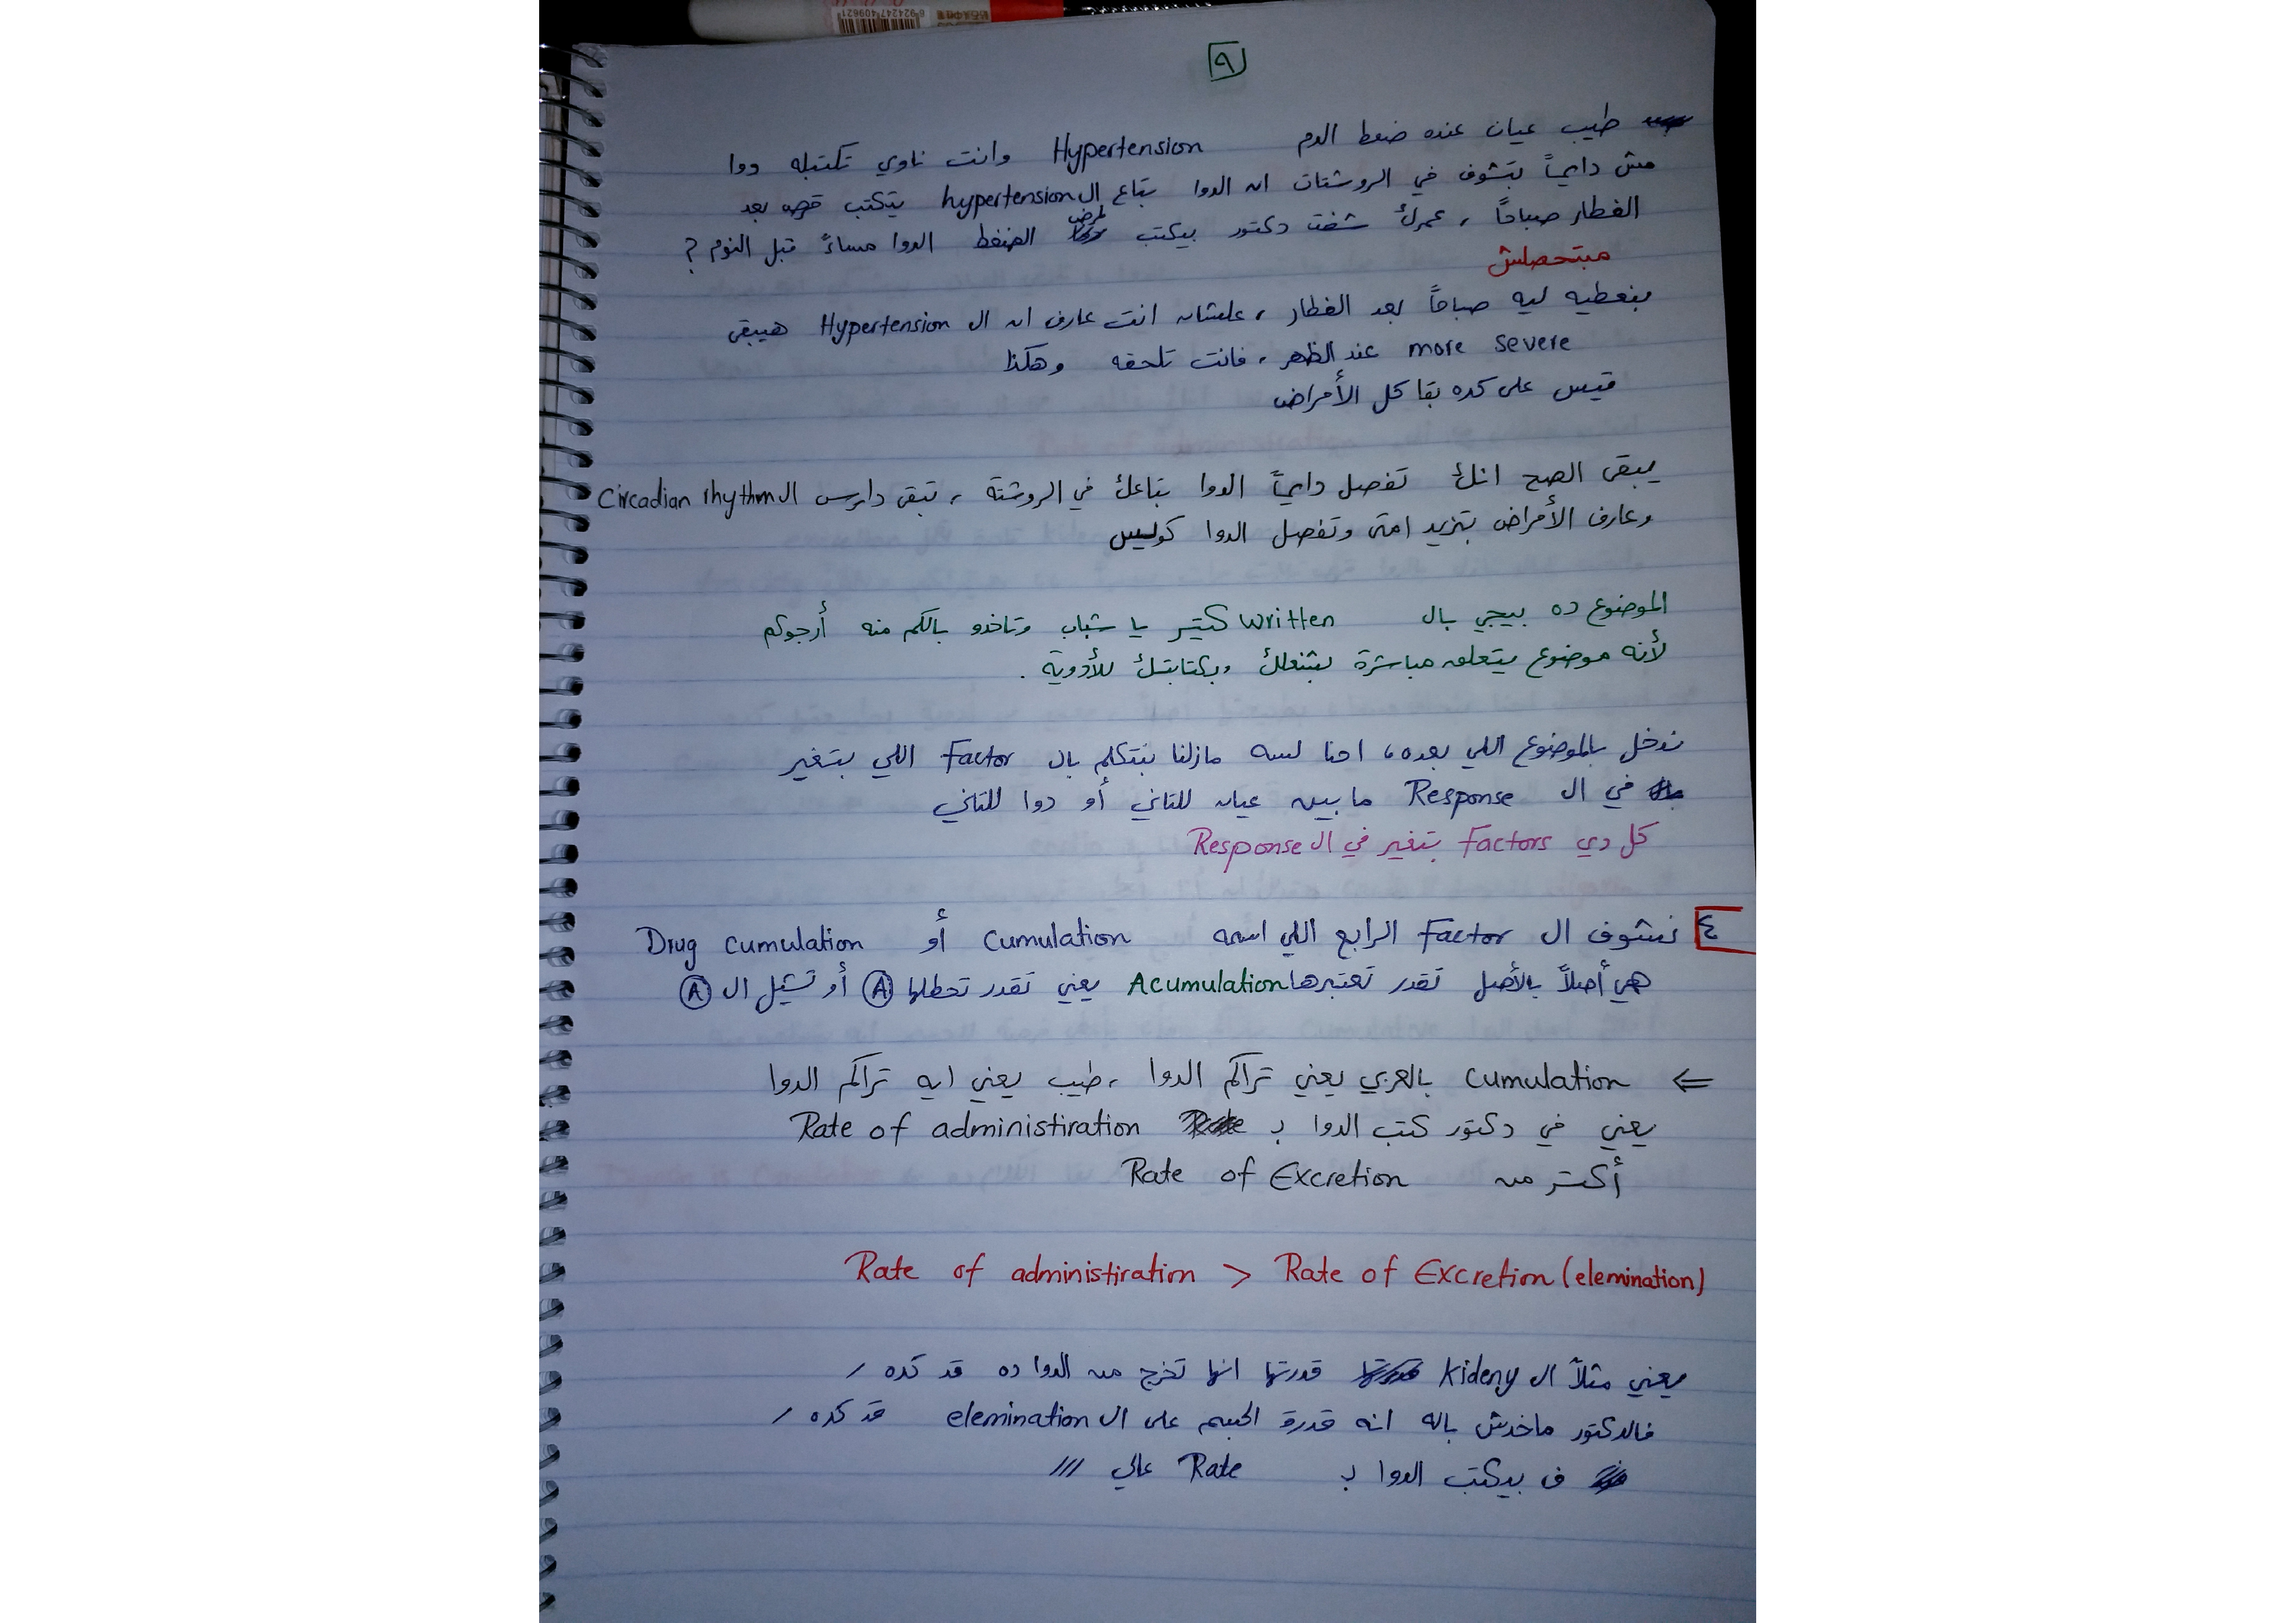 ٩
طيب عيان عنده ضغط الدم Hypertension وانت ناوي تكتبله دوا
مش دايماً بتشوف في الروشتات ان الدوا بتاع ال hypertension يتكتب قرص بعد
الفطار صباحاً ، عمرك شفت دكتور بيكتب لمرض الضغط الدوا مساءً قبل النوم ؟
مبتحصلش
بنعطيه ليه صباحاً بعد الفطار ، علشان انت عارف ان ال Hypertension هيبقى
more severe عند الظهر ، فانت تلحقه وهكذا
قيس على كده بقا كل الأمراض
يبقى الصح انك تفصل دايماً الدوا بتاعك في الروشتة ، تبقى دارس ال Circadian rhythm
وعارف الأمراض بتزيد امتى وتفصل الدوا كويس
الموضوع ده بيجي بال written كتير يا شباب وتاخدو بالكم منه أرجوكم
لأنه موضوع يتعلق مباشرة بشغلك وبكتابتك للأدوية .
ندخل بالموضوع اللي بعده ، احنا لسه مازلنا بنتكلم بال Factor اللي بتغير
في ال Response ما بين عيان للتاني أو دوا للتاني
كل دي Factors بتغير في ال Response
٤ نشوف ال Factor الرابع اللي اسمه Cumulation أو Drug cumulation
هي أصلاً بالأصل تقدر تعتبرها Acumulation يعني تقدر تحطلها A أو تشيل ال A
⇐ Cumulation بالعربي يعني تراكم الدوا ، طيب يعني ايه تراكم الدوا
يعني في دكتور كتب الدوا بـ Rate of administiration
أكتر من Rate of Excretion
Rate of administiration > Rate of Excretion (elemination)
يعني مثلاً ال Kideny قدرتها انها تخرج من الدوا ده قد كده /
فالدكتور ماخدش باله انه قدرة الجسم على ال elemination قد كده /
ف بيكتب الدوا بـ Rate عالي ///